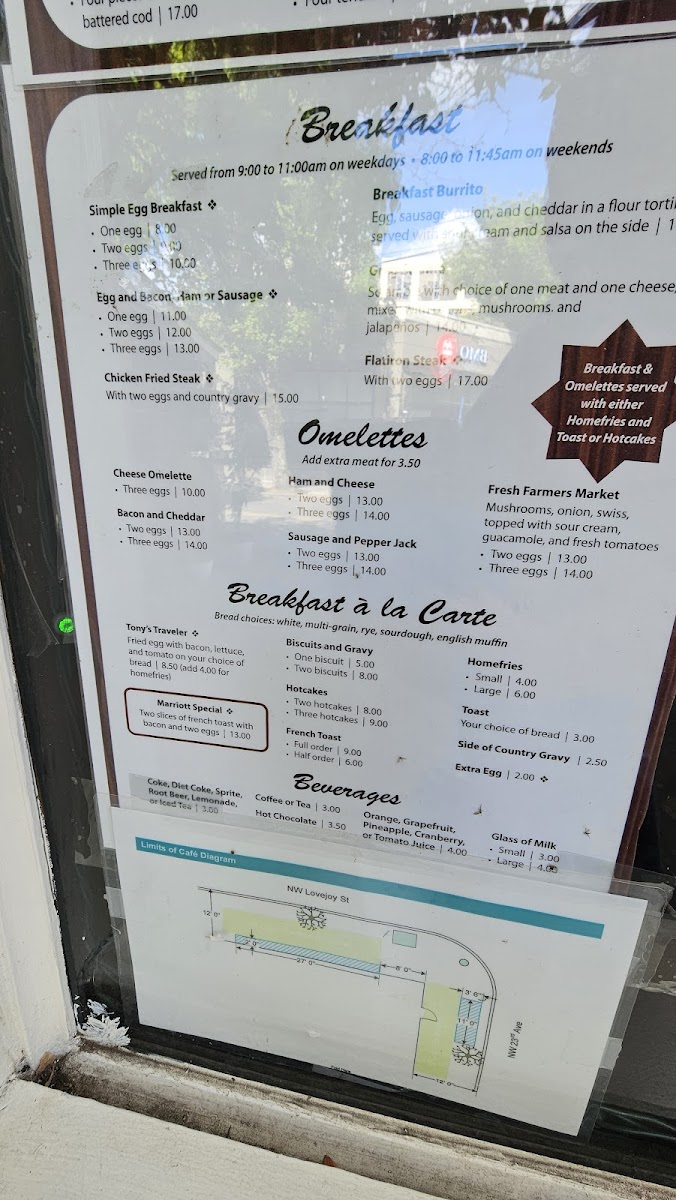 battered cod | 17.00
Breakfast
Served from 9:00 to 11:00am on weekdays • 8:00 to 11:45am on weekends
Simple Egg Breakfast ❖
• One egg | 8.00
• Two eggs | 9.00
• Three eggs | 10.00
Egg and Bacon, Ham or Sausage ❖
• One egg | 11.00
• Two eggs | 12.00
• Three eggs | 13.00
Chicken Fried Steak ❖
With two eggs and country gravy | 15.00
Breakfast Burrito
Egg, sausage, onion, and cheddar in a flour
served with sour cream and salsa on the side |
with choice of one meat and one cheese,
mushrooms, and
jalapeños | 14.00
Flatiron Steak ❖
With two eggs | 17.00
Breakfast &
Omelettes served
with either
Homefries and
Toast or Hotcakes
Omelettes
Add extra meat for 3.50
Cheese Omelette
• Three eggs | 10.00
Bacon and Cheddar
• Two eggs | 13.00
• Three eggs | 14.00
Ham and Cheese
• Two eggs | 13.00
• Three eggs | 14.00
Sausage and Pepper Jack
• Two eggs | 13.00
• Three eggs | 14.00
Fresh Farmers Market
Mushrooms, onion, swiss,
topped with sour cream,
guacamole, and fresh tomatoes
• Two eggs | 13.00
• Three eggs | 14.00
Breakfast à la Carte
Bread choices: white, multi-grain, rye, sourdough, english muffin
Tony's Traveler ❖
Fried egg with bacon, lettuce,
and tomato on your choice of
bread | 8.50 (add 4.00 for
homefries)
Marriott Special ❖
Two slices of french toast with
bacon and two eggs | 13.00
Biscuits and Gravy
• One biscuit | 5.00
• Two biscuits | 8.00
Hotcakes
• Two hotcakes | 8.00
• Three hotcakes | 9.00
French Toast
• Full order | 9.00
• Half order | 6.00
Homefries
• Small | 4.00
• Large | 6.00
Toast
Your choice of bread | 3.00
Side of Country Gravy | 2.50
Extra Egg | 2.00 ❖
Beverages
Coke, Diet Coke, Sprite,
Root Beer, Lemonade,
or Iced Tea | 3.00
Coffee or Tea | 3.00
Hot Chocolate | 3.50
Orange, Grapefruit,
Pineapple, Cranberry,
or Tomato Juice | 4.00
Glass of Milk
• Small | 3.00
• Large | 4.00
Limits of Café Diagram
NW Lovejoy St
12' 0"
27' 0"
6' 0"
3' 6"
11' 0"
12' 0"
NW 23rd Ave